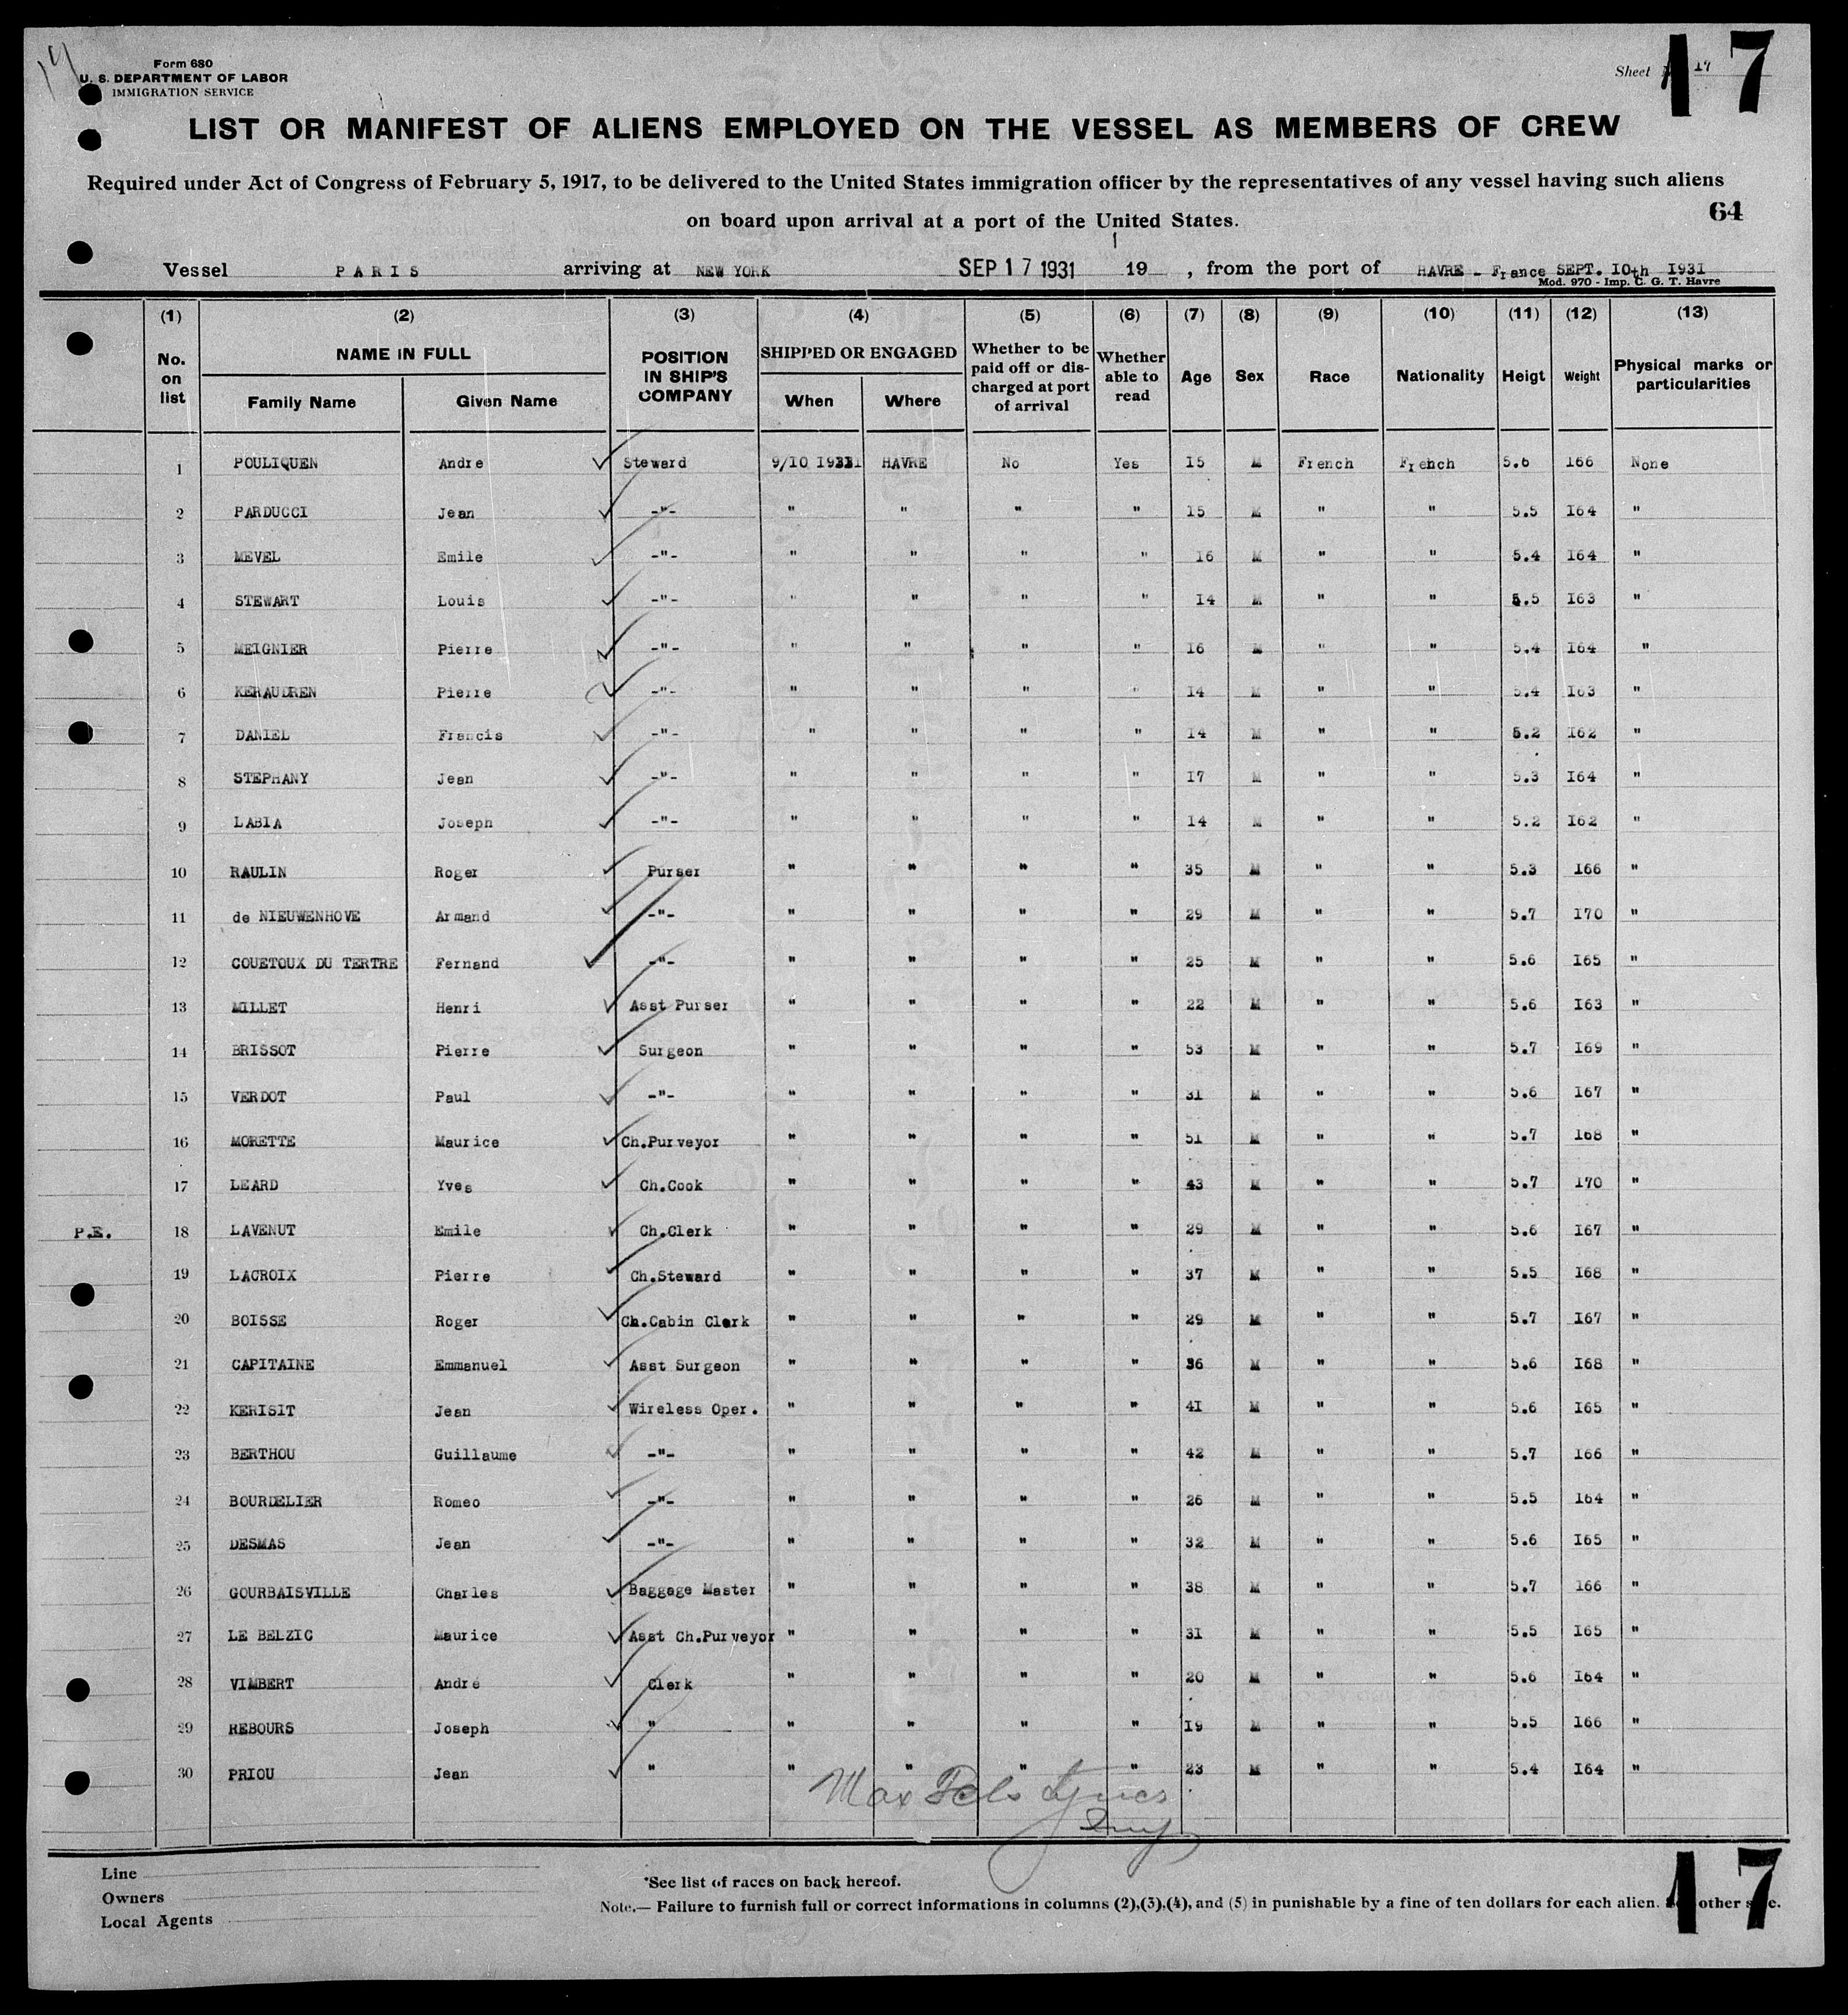 Form 680
U. S. DEPARTMENT OF LABOR
IMMIGRATION SERVICE
Sheet 17
17
LIST OR MANIFEST OF ALIENS EMPLOYED ON THE VESSEL AS MEMBERS OF CREW
Required under Act of Congress of February 5, 1917, to be delivered to the United States immigration officer by the representatives of any vessel having such aliens
on board upon arrival at a port of the United States.
64
Vessel PARIS arriving at NEW YORK SEP 17 1931 19 , from the port of HAVRE - France SEPT. 10th 1931
Mod. 970 - Imp. C. G. T. Havre
(1) (2) (3) (4) (5) (6) (7) (8) (9) (10) (11) (12) (13)
No. on list NAME IN FULL Family Name Given Name POSITION IN SHIP'S COMPANY SHIPPED OR ENGAGED When Where Whether to be paid off or discharged at port of arrival Whether able to read Age Sex Race Nationality Heigt Weight Physical marks or particularities
1 POULIQUEN Andre Steward 9/10 1931 HAVRE No Yes 15 M French French 5.6 166 None
2 PARDUCCI Jean -"- " " " " 15 M " " 5.5 164 "
3 MEVEL Emile -"- " " " " 16 M " " 5.4 164 "
4 STEWART Louis -"- " " " " 14 M " " 5.5 163 "
5 MEIGNIER Pierre -"- " " " " 16 M " " 5.4 164 "
6 KERAUDREN Pierre -"- " " " " 14 M " " 5.4 163 "
7 DANIEL Francis -"- " " " " 14 M " " 5.2 162 "
8 STEPHANY Jean -"- " " " " 17 M " " 5.3 164 "
9 LABIA Joseph -"- " " " " 14 M " " 5.2 162 "
10 RAULIN Roger Purser " " " " 35 M " " 5.3 166 "
11 de NIEUWENHOVE Armand -"- " " " " 29 M " " 5.7 170 "
12 COUETOUX DU TERTRE Fernand -"- " " " " 25 M " " 5.6 165 "
13 MILLET Henri Asst Purser " " " " 22 M " " 5.6 163 "
14 BRISSOT Pierre Surgeon " " " " 53 M " " 5.7 169 "
15 VERDOT Paul -"- " " " " 31 M " " 5.6 167 "
16 MORETTE Maurice Ch.Purveyor " " " " 51 M " " 5.7 168 "
17 LEARD Yves Ch.Cook " " " " 43 M " " 5.7 170 "
P.E. 18 LAVENUT Emile Ch.Clerk " " " " 29 M " " 5.6 167 "
19 LACROIX Pierre Ch.Steward " " " " 37 M " " 5.5 168 "
20 BOISSE Roger Ch.Cabin Clerk " " " " 29 M " " 5.7 167 "
21 CAPITAINE Emmanuel Asst Surgeon " " " " 36 M " " 5.6 168 "
22 KERISIT Jean Wireless Oper. " " " " 41 M " " 5.6 165 "
23 BERTHOU Guillaume -"- " " " " 42 M " " 5.7 166 "
24 BOURDELIER Romeo -"- " " " " 26 M " " 5.5 164 "
25 DESMAS Jean -"- " " " " 32 M " " 5.6 165 "
26 GOURBAISVILLE Charles Baggage Master " " " " 38 M " " 5.7 166 "
27 LE BELZIC Maurice Asst Ch.Purveyor " " " " 31 M " " 5.5 165 "
28 VIMBERT André Clerk " " " " 20 M " " 5.6 164 "
29 REBOURS Joseph " " " " " 19 M " " 5.5 166 "
30 PRIOU Jean " " " " " 23 M " " 5.4 164 "
Max
Line
Owners
Local Agents
*See list of races on back hereof.
Note.— Failure to furnish full or correct informations in columns (2),(3),(4), and (5) in punishable by a fine of ten dollars for each alien. other
17